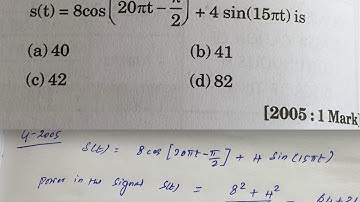 s(t) = 8cos(20πt − π/2) + 4 sin(15πt) is
(a) 40 (b) 41
(c) 42 (d) 82
[2005 : 1 Mark]
4-2005
S(t) = 8 cos [20πt - π/2] + 4 sin (15πt)
Power in the signal s(t) = 8² + 4² =